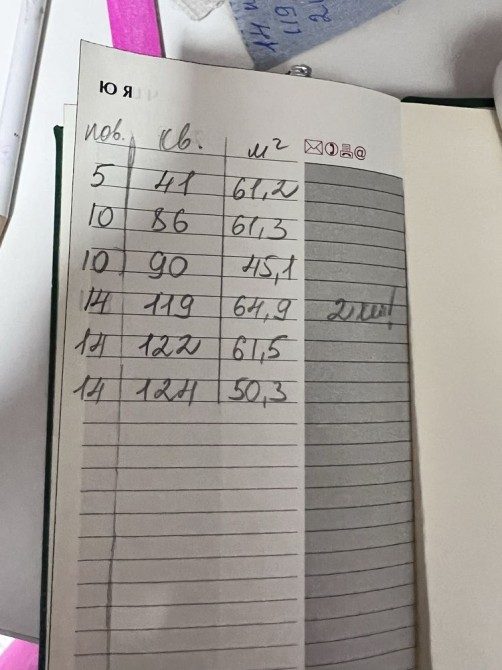 Ю Я
пов. кв. м²
5 41 61,2
10 86 61,3
10 90 45,1
14 119 64,9
14 122 61,5
14 124 50,3